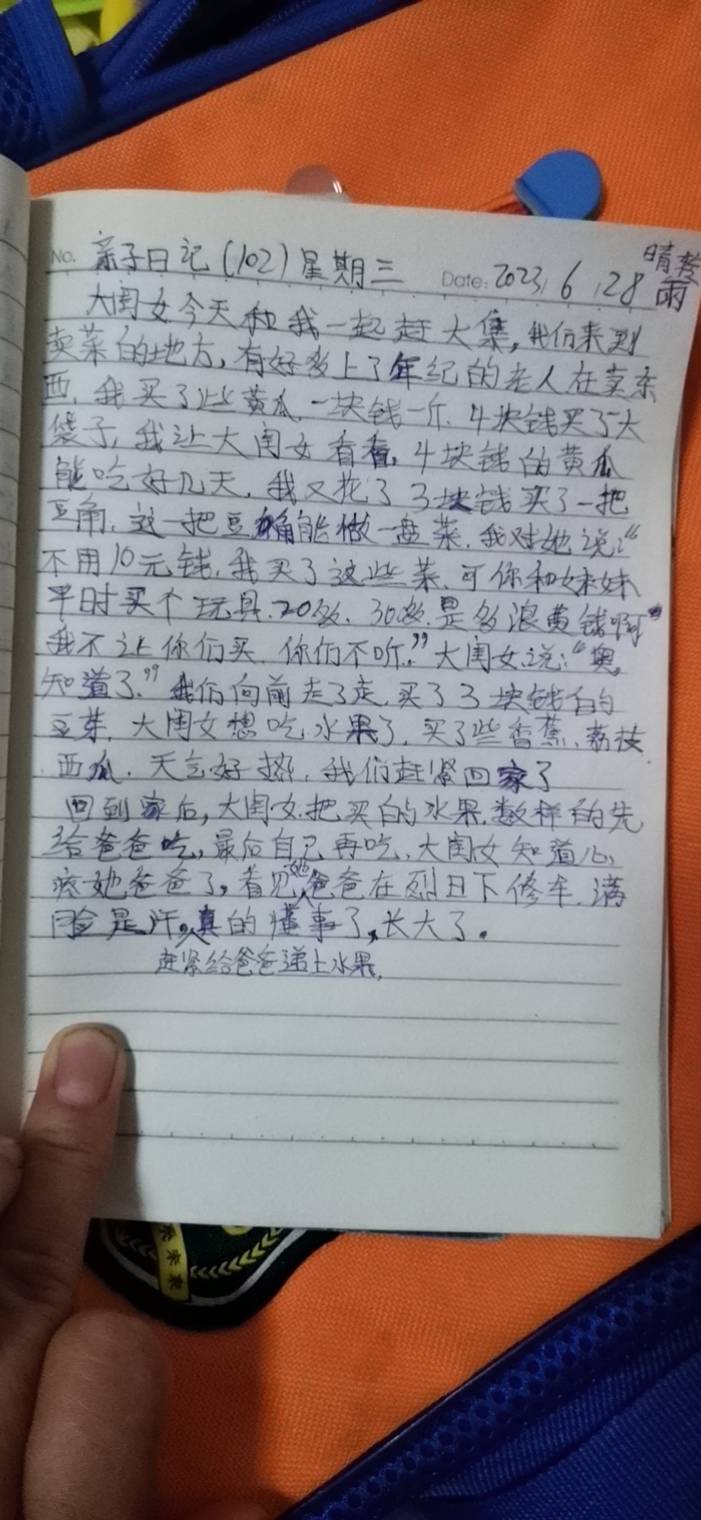 No. 亲子日记(102)星期三 Date: 2023, 6, 28 晴转雨
大闺女今天和我一起赶大集,我们来到
卖菜的地方,有好多上了年纪的老人在卖东
西,我买了些黄瓜一块钱一斤,4块钱买了大
袋子,我让大闺女看看,4块钱的黄瓜
能吃好几天,我又花了3块钱买了一把
豆角,这一把豆角能做一盘菜,我对她说:“
不用10元钱,我买了这些菜,可你和妹妹
平时买个玩具,20多、30多,是多浪费钱啊”
我不让你们买,你们不听。”大闺女说:“奥,
知道了。”我们向前走了走,买了3块钱的
豆芽,大闺女想吃水果了,买了些香蕉、荔枝
西瓜,天气好热,我们赶紧回家了
回到家后,大闺女把买的水果,数样的先
给爸爸吃,最后自己再吃,大闺女知道心
疼她爸爸了,看见她爸爸在烈日下修车,满
脸是汗。真的懂事了,长大了。
赶紧给爸爸递上水果,